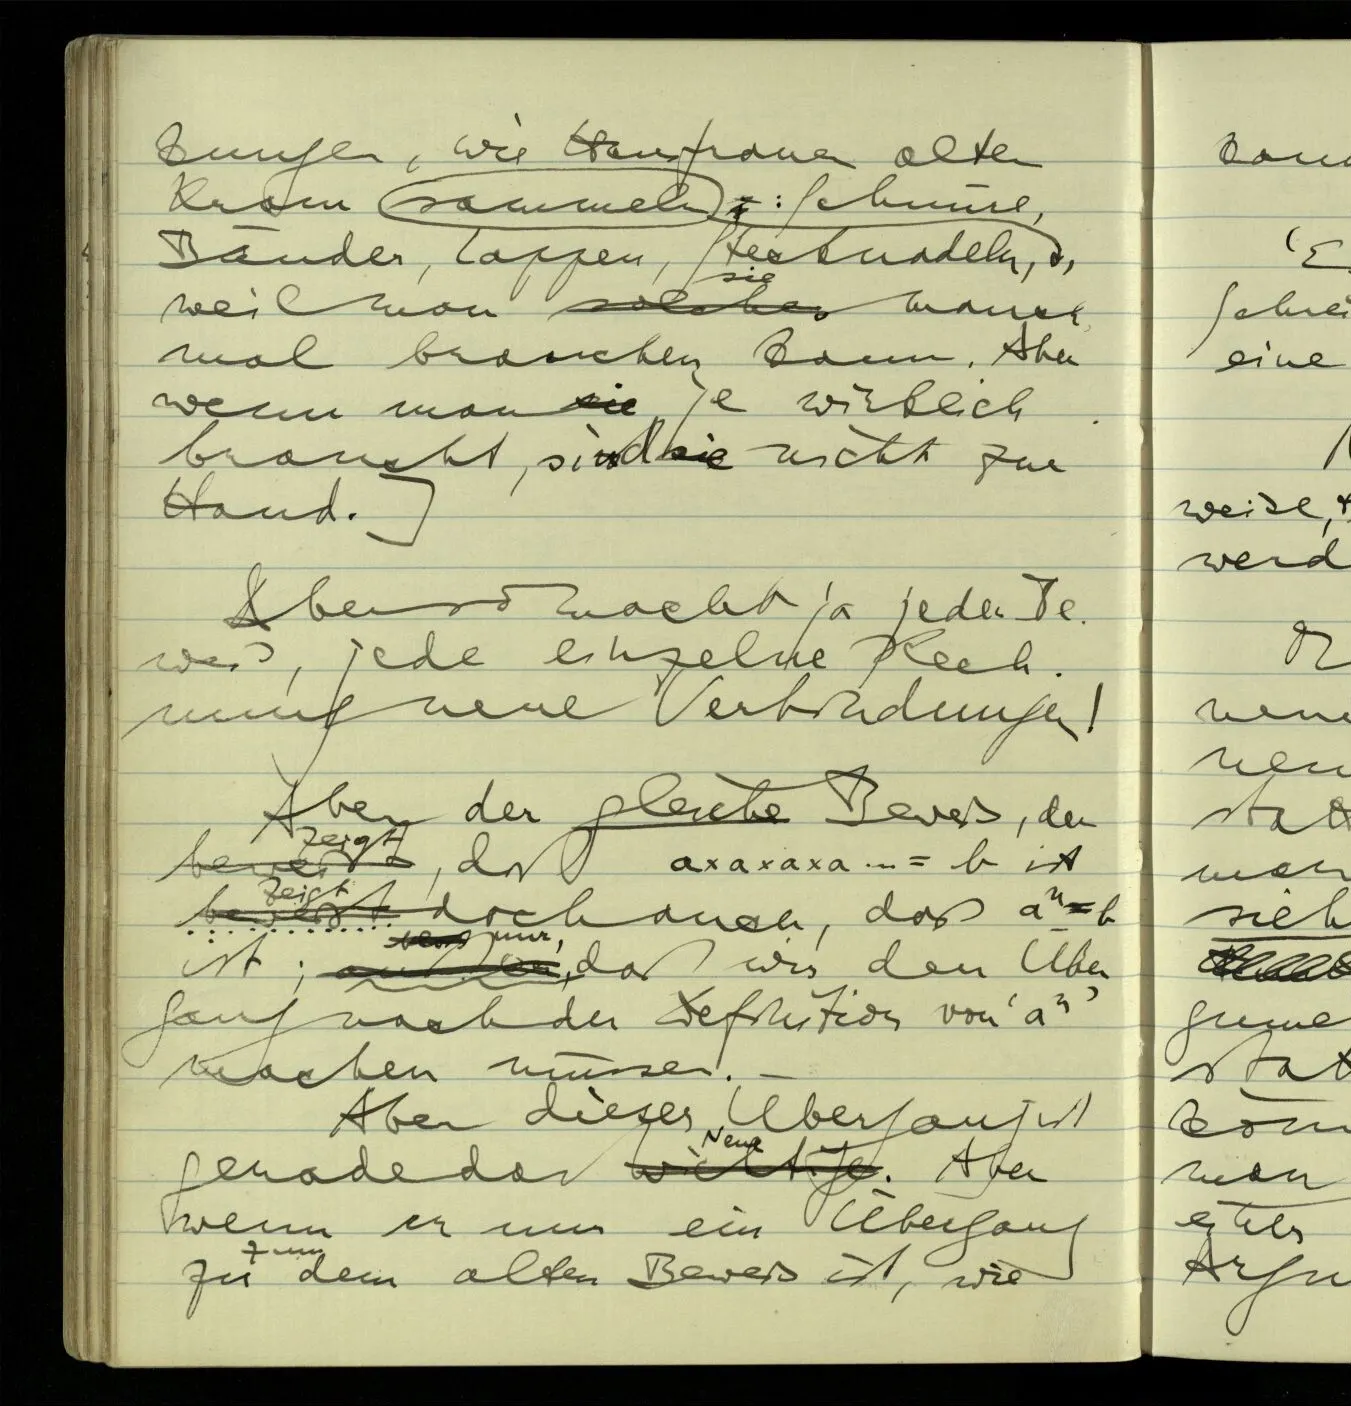 kungen, wie Hausfrauen alten
Kram sammeln : Schnüre,
Bänder, Lappen, Stecknadeln,
sie
weil man solches manch
mal brauchen kann. Aber
wenn man sie je wirklich
braucht, sind sie nicht zur
Hand.]
Aber so macht ja jeder Be-
weis, jede einzelne Rech-
nung neue Verbindungen!
Aber der gleiche Beweis, der
zeigt
beweist, daß a×a×a×a ... = b ist
zeigt
beweist doch auch, daß aⁿ = b
nur,
ist; daß wir den Über
gang nach der Definition von ‘aⁿ’
machen müssen. –
Aber dieser Übergang ist
Neue
gerade das wichtige. Aber
wenn er nur ein Übergang
zum
zu dem alten Beweis ist, wie
kann
‘E
schrei
eine
weise,
werd
wenn
neu
statt
man
sieh
gume
statt
könn
man
Argu